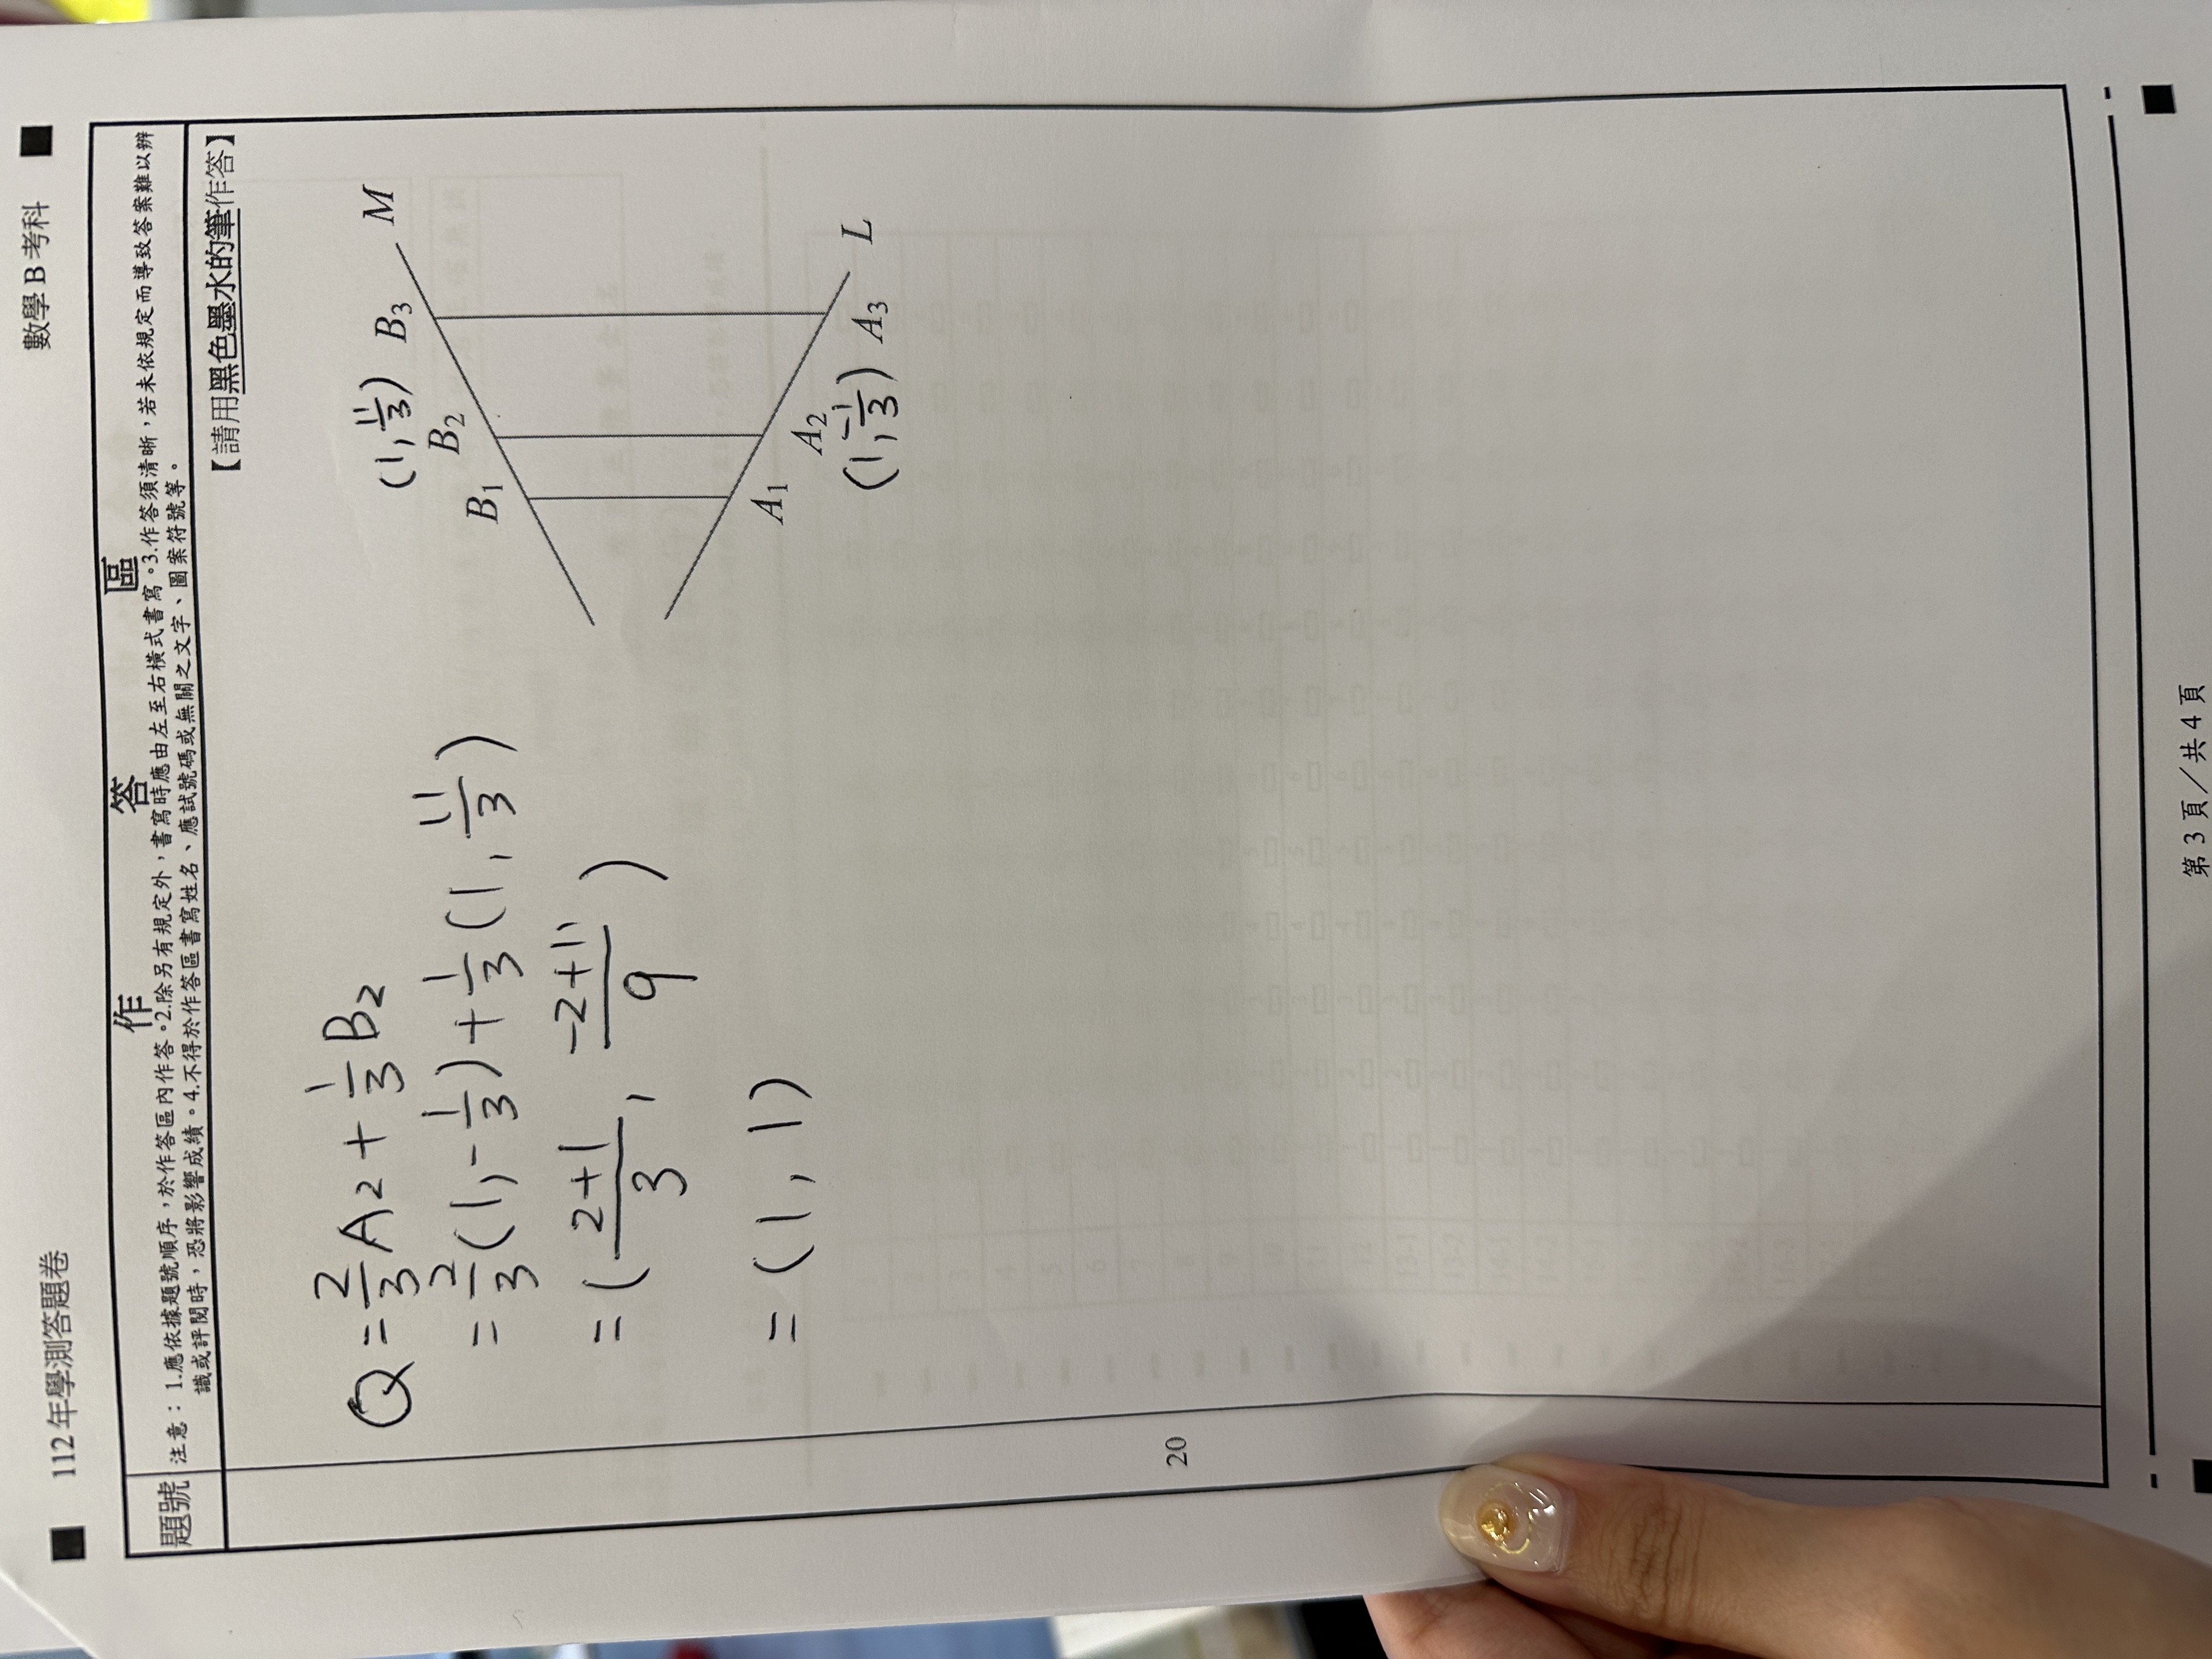 112年學測答題卷
數學B考科
題號
作答區
注意：1.應依據題號順序，於作答區內作答。2.除另有規定外，書寫時應由左至右橫式書寫。3.作答須清晰，若未依規定而導致答案難以辨
識或評閱時，恐將影響成績。4.不得於作答區書寫姓名、應試號碼或無關之文字、圖案符號等。
【請用黑色墨水的筆作答】
20
Q = 2/3 A₂ + 1/3 B₂
= 2/3 (1, -1/3) + 1/3 (1, 11/3)
= ( (2+1)/3 , (-2+11)/9 )
= (1, 1)
M
(1, 11/3) B₃
B₂
B₁
A₁
A₂
(1, -1/3) A₃
L
第3頁／共4頁